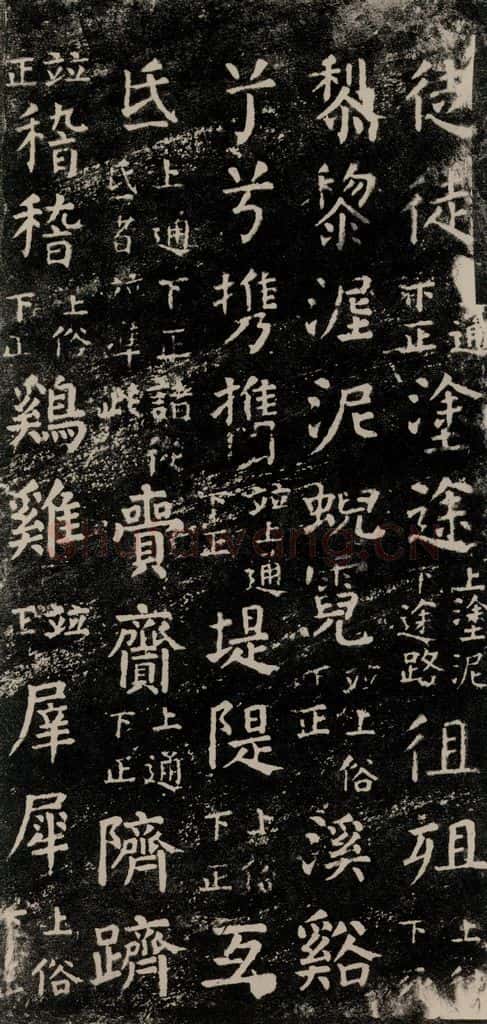 徒徒通正塗途上塗泥下途路徂殂上下
黎黎泥泥蜺霓並上俗下正溪谿
兮兮携㩦並上通下正堤隄上俗下正互
氐上通下正諸從氐者並準此賷齎上通下正隮躋
並正稽稽上俗下正鷄雞並正犀犀上俗下正
shufawang.CN